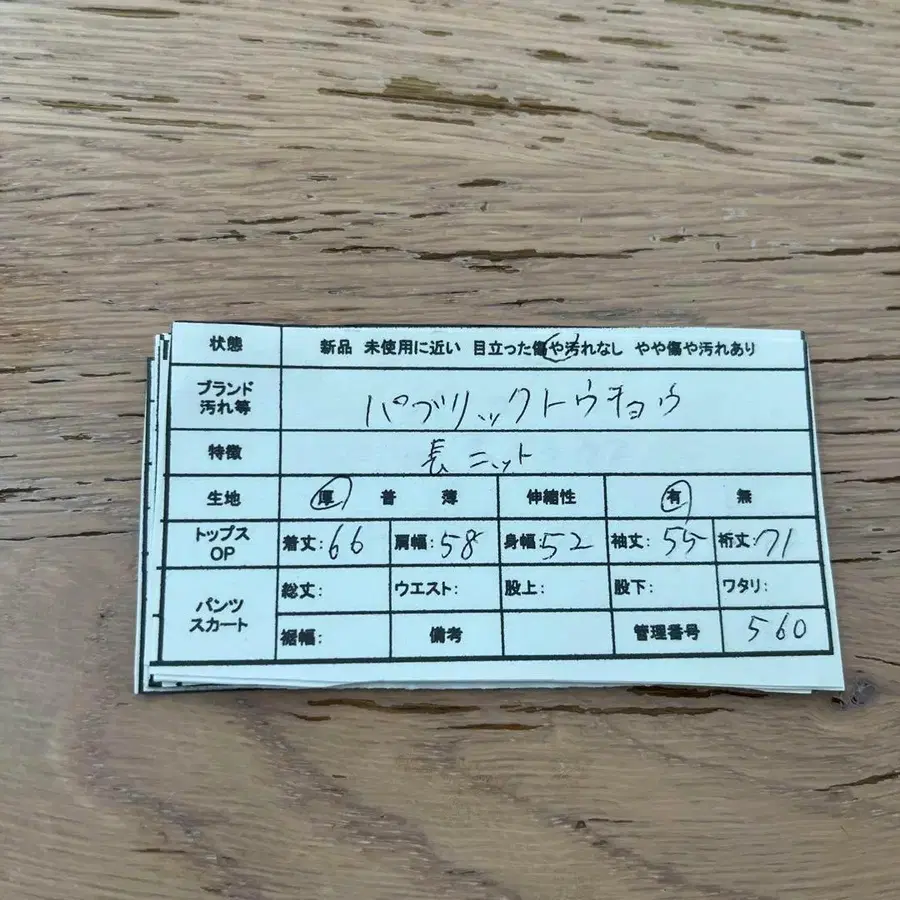 状態 新品 未使用に近い 目立った傷や汚れなし やや傷や汚れあり
ブランド
汚れ等 パブリックトウキョウ
特徴 長ニット
生地 厚 普 薄 伸縮性 有 無
トップス
OP 着丈:66 肩幅:58 身幅:52 袖丈:55 裄丈:71
パンツ
スカート 総丈: ウエスト: 股上: 股下: ワタリ:
裾幅: 備考 管理番号 560